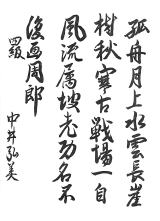 孤舟月上水雲長崖
樹秋寒古戰場一自
風流屬坡老功名不
復画周郎
四級 中井弘美